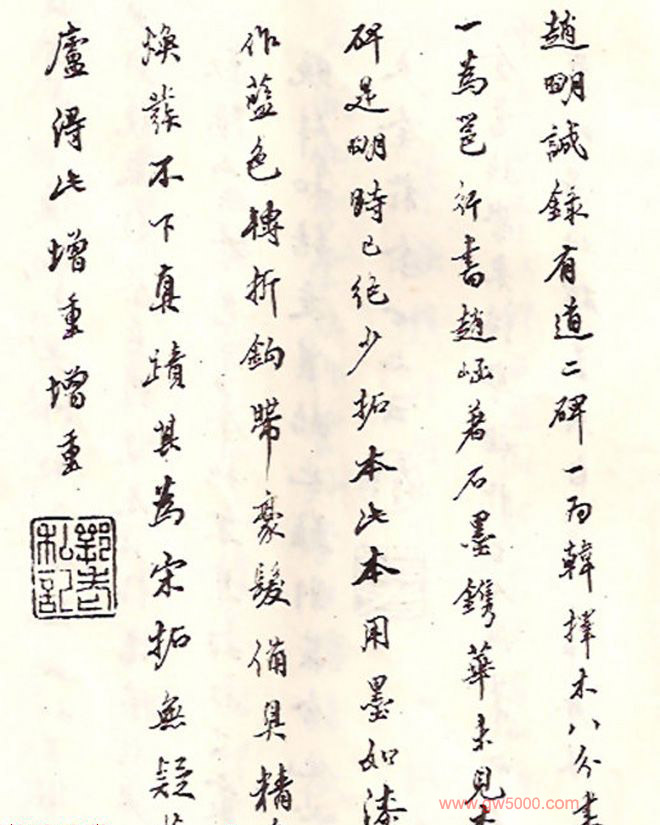 趙明誠錄有道二碑一為韓擇木八分書
一為邕行書趙崡著石墨鐫華未見
碑是明時已絕少拓本此本用墨如漆
作藍色轉折鉤帶豪髮備具精
煥發不下真蹟其為宋拓無疑
廬得此增重增重
私記
www.gw5000.com